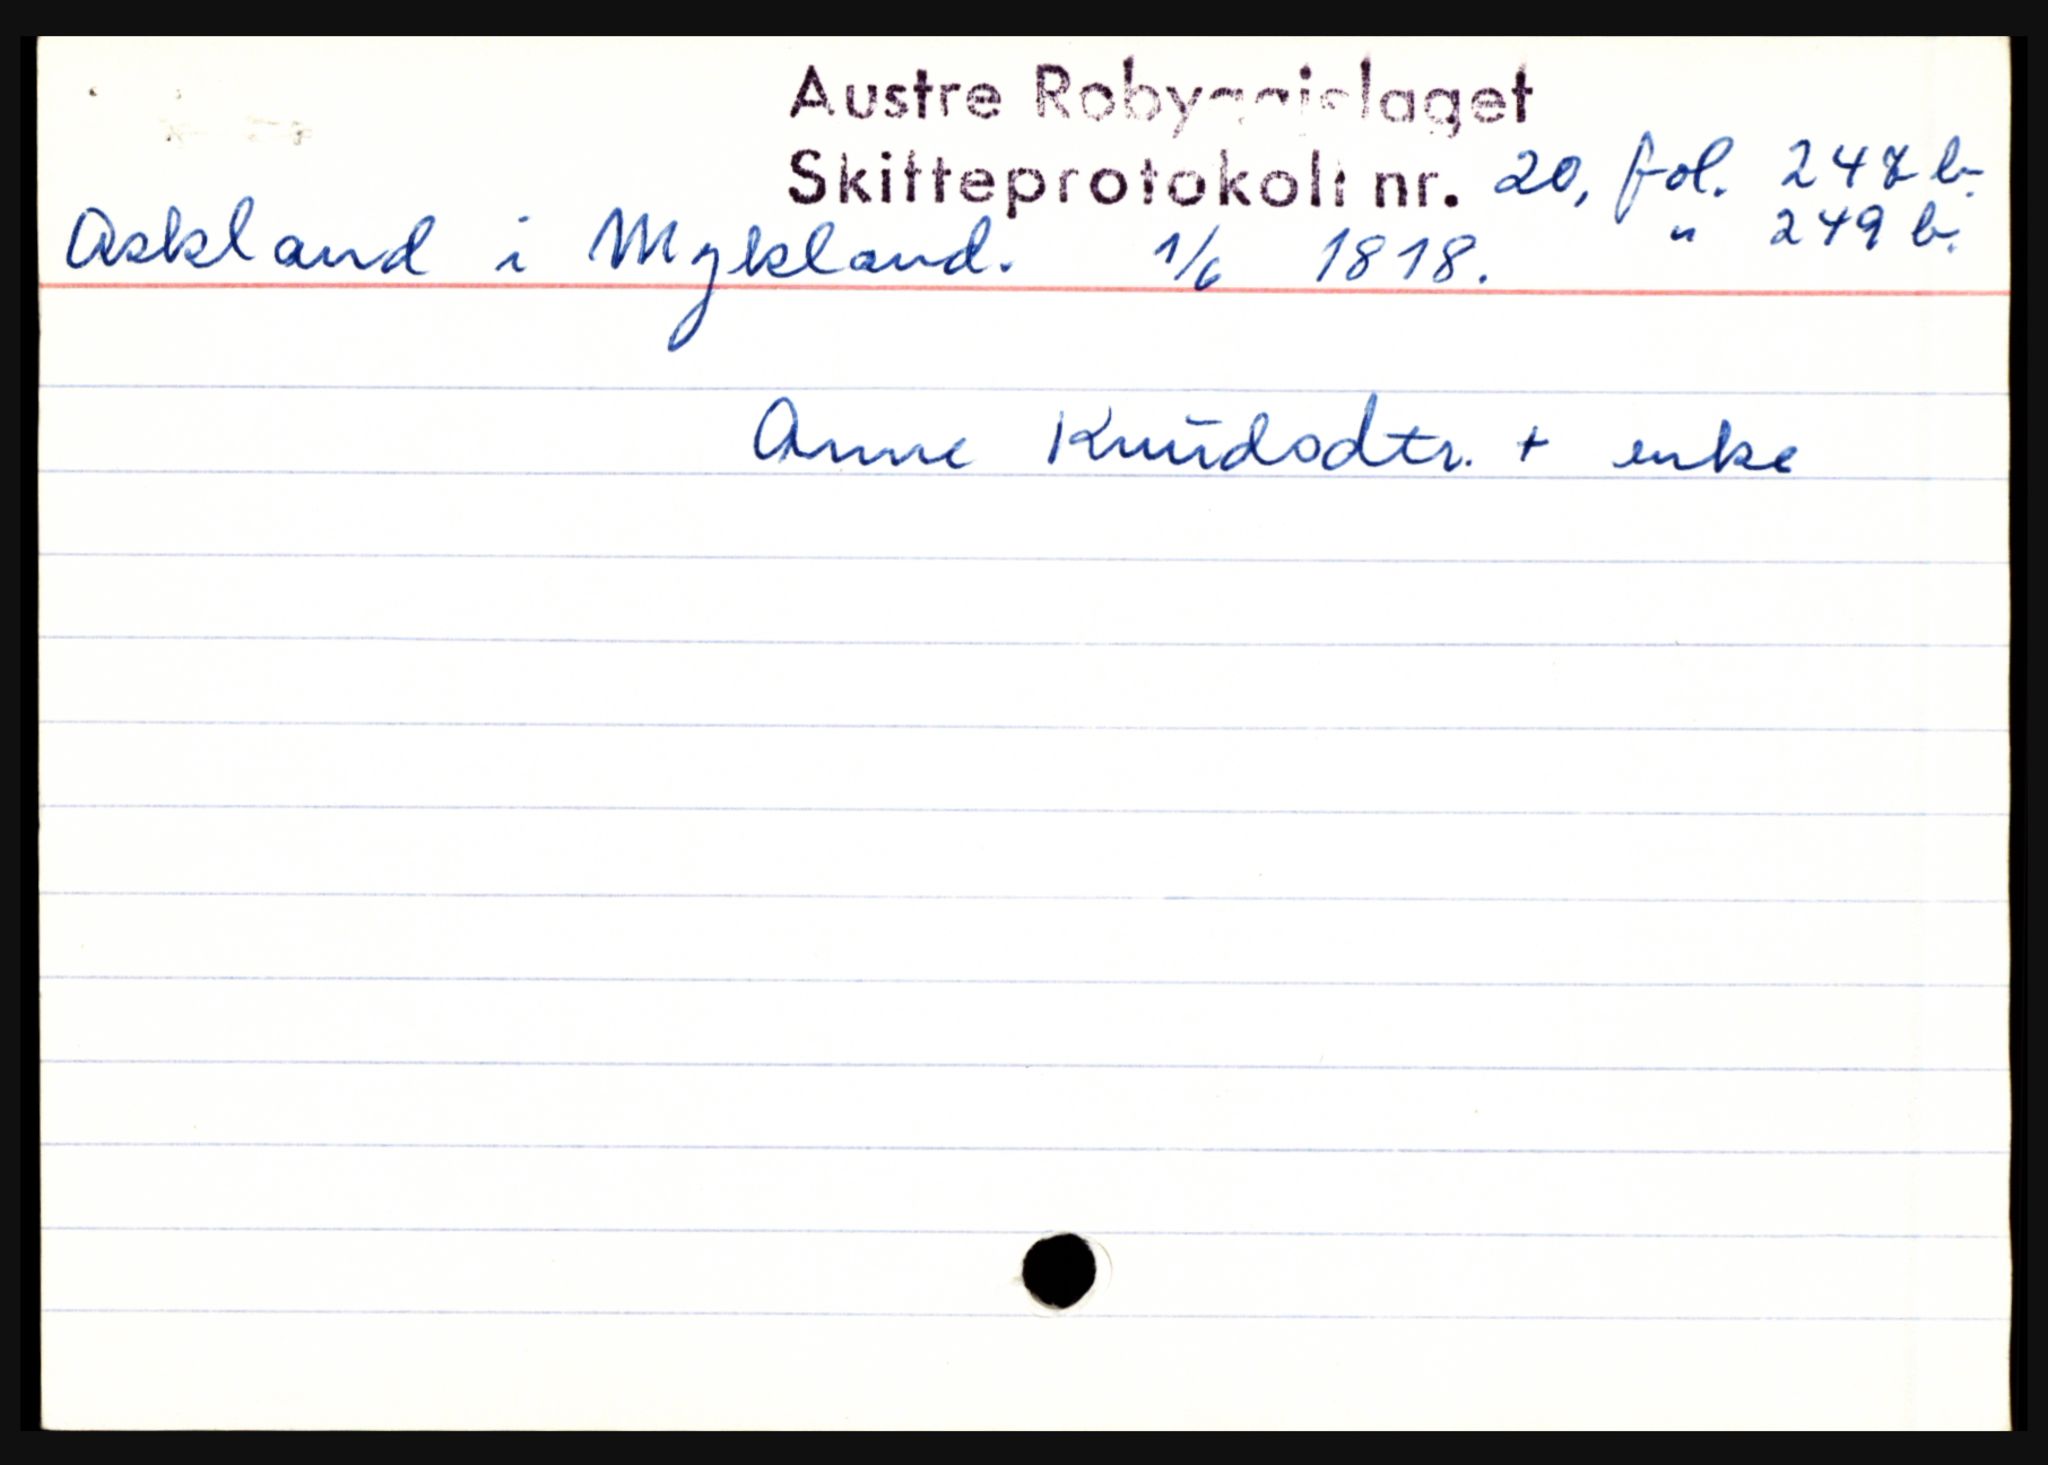 Austre Robyggjelaget
Skifteprotokoll nr. 20, fol. 247 b.
" 249 b.
Askland i Mykland. 1/6 1818.
Anne Knudsdtr. + enke